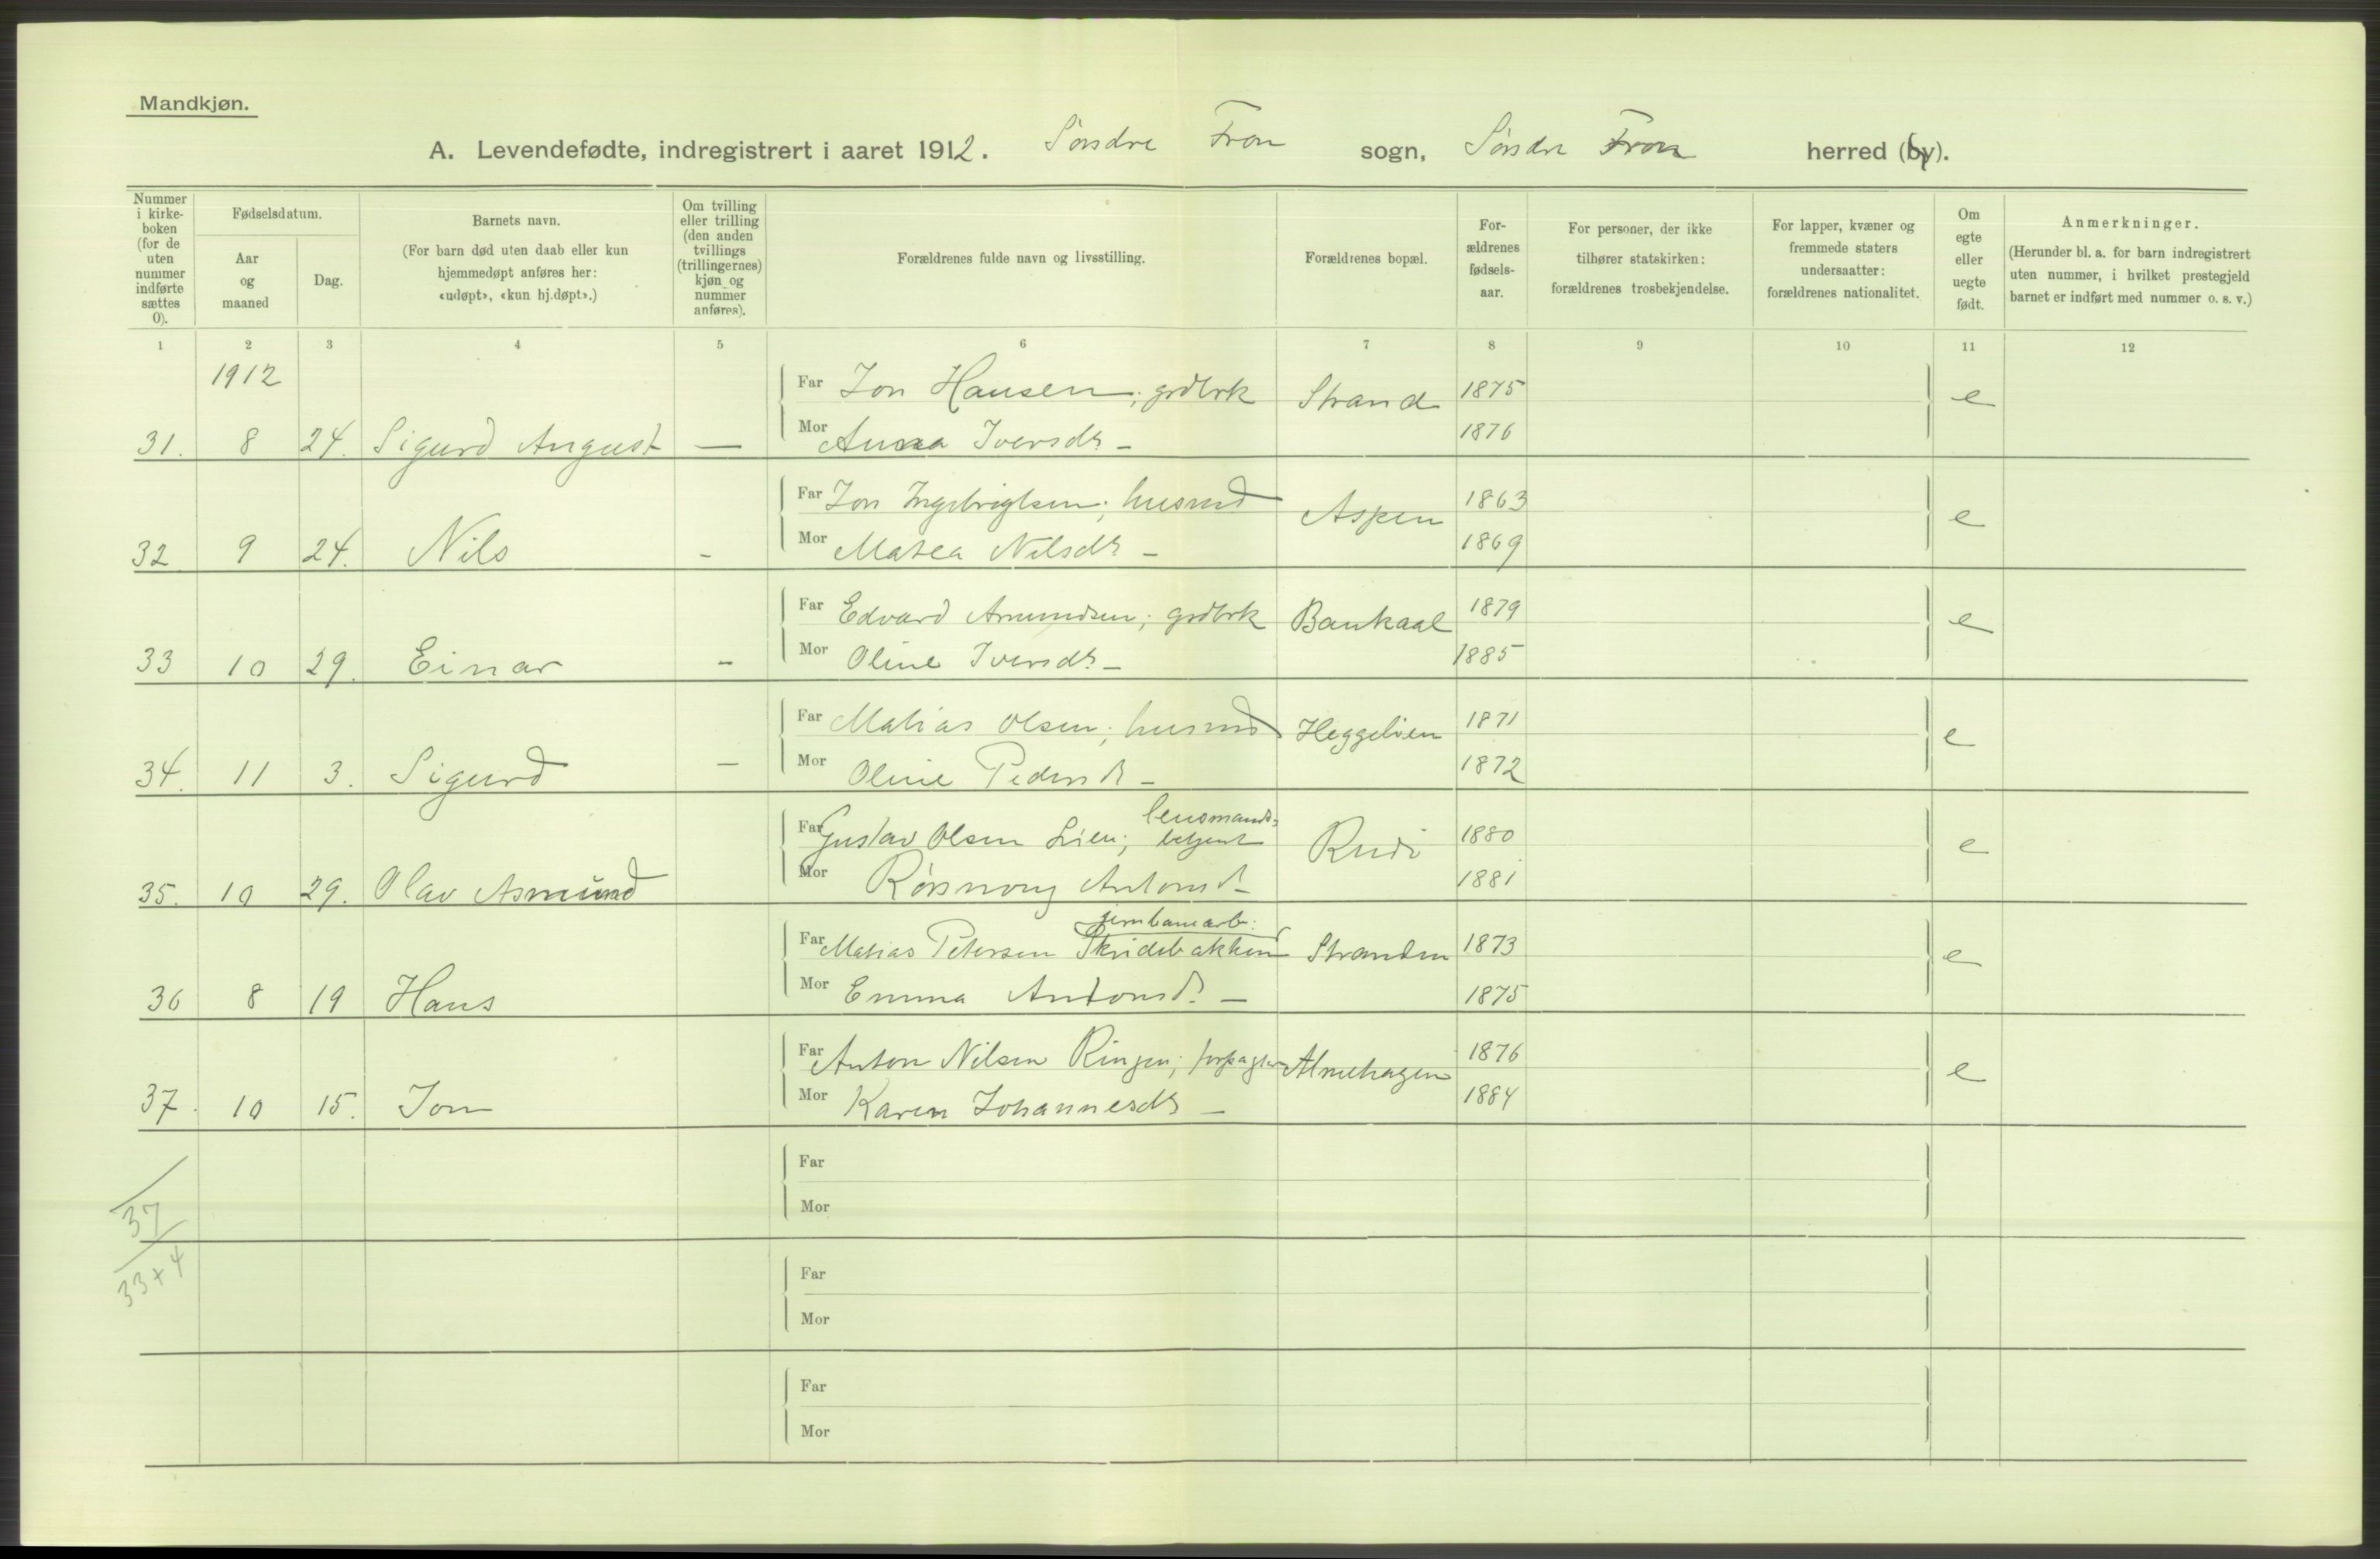 Mandkjøn.
A. Levendefødte, indregistrert i aaret 1912. Søndre Fron sogn, Søndre Fron herred (by).
Nummer i kirke-boken (for de uten nummer indførte sættes 0).
Fødselsdatum.
Aar og maaned
Dag.
Barnets navn.
(For barn død uten daab eller kun hjemmedøpt anføres her: «udøpt», «kun hj.døpt».)
Om tvilling eller trilling (den anden tvillings (trillingernes) kjøn og nummer anføres).
Forældrenes fulde navn og livsstilling.
Forældrenes bopæl.
For-ældrenes fødsels-aar.
For personer, der ikke tilhører statskirken: forældrenes trosbekjendelse.
For lapper, kvæner og fremmede staters undersaatter: forældrenes nationalitet.
Om egte eller uegte født.
Anmerkninger.
(Herunder bl. a. for barn indregistrert uten nummer, i hvilket prestegjeld barnet er indført med nummer o. s. v.)
1 2 3 4 5 6 7 8 9 10 11 12
1912
Far Jon Hansen; grdbrk Strand 1875 e
31. 8 24. Sigurd August — Mor Anna Iversdr – 1876
Far Jon Ingebrigtsen; husmd Aspen 1863 e
32 9 24. Nils - Mor Matea Nilsdr – 1869
Far Edvard Amundsen; grdbrk Baukaal 1879 e
33 10 29. Einar - Mor Oline Iversdr – 1885
Far Matias Olsen; husmd Heggelien 1871 e
34. 11 3. Sigurd — Mor Oline Pedersdr – 1872
lensmands-
Far Gustav Olsen Lien; betjent Rudi 1880 e
35. 10 29. Olav Asmund Mor Rønnaug Antonsd – 1881
jernbanearb:
Far Matias Petersen Skridebakken Stranden 1873 e
36 8 19 Hans Mor Emma Antonsd. – 1875
Far Anton Nilsen Ringen; forpagter Almehagen 1876 e
37. 10 15. Jon Mor Karen Johannesdr – 1884
Far
37 Mor
33+4 Far
Mor
Far
Mor